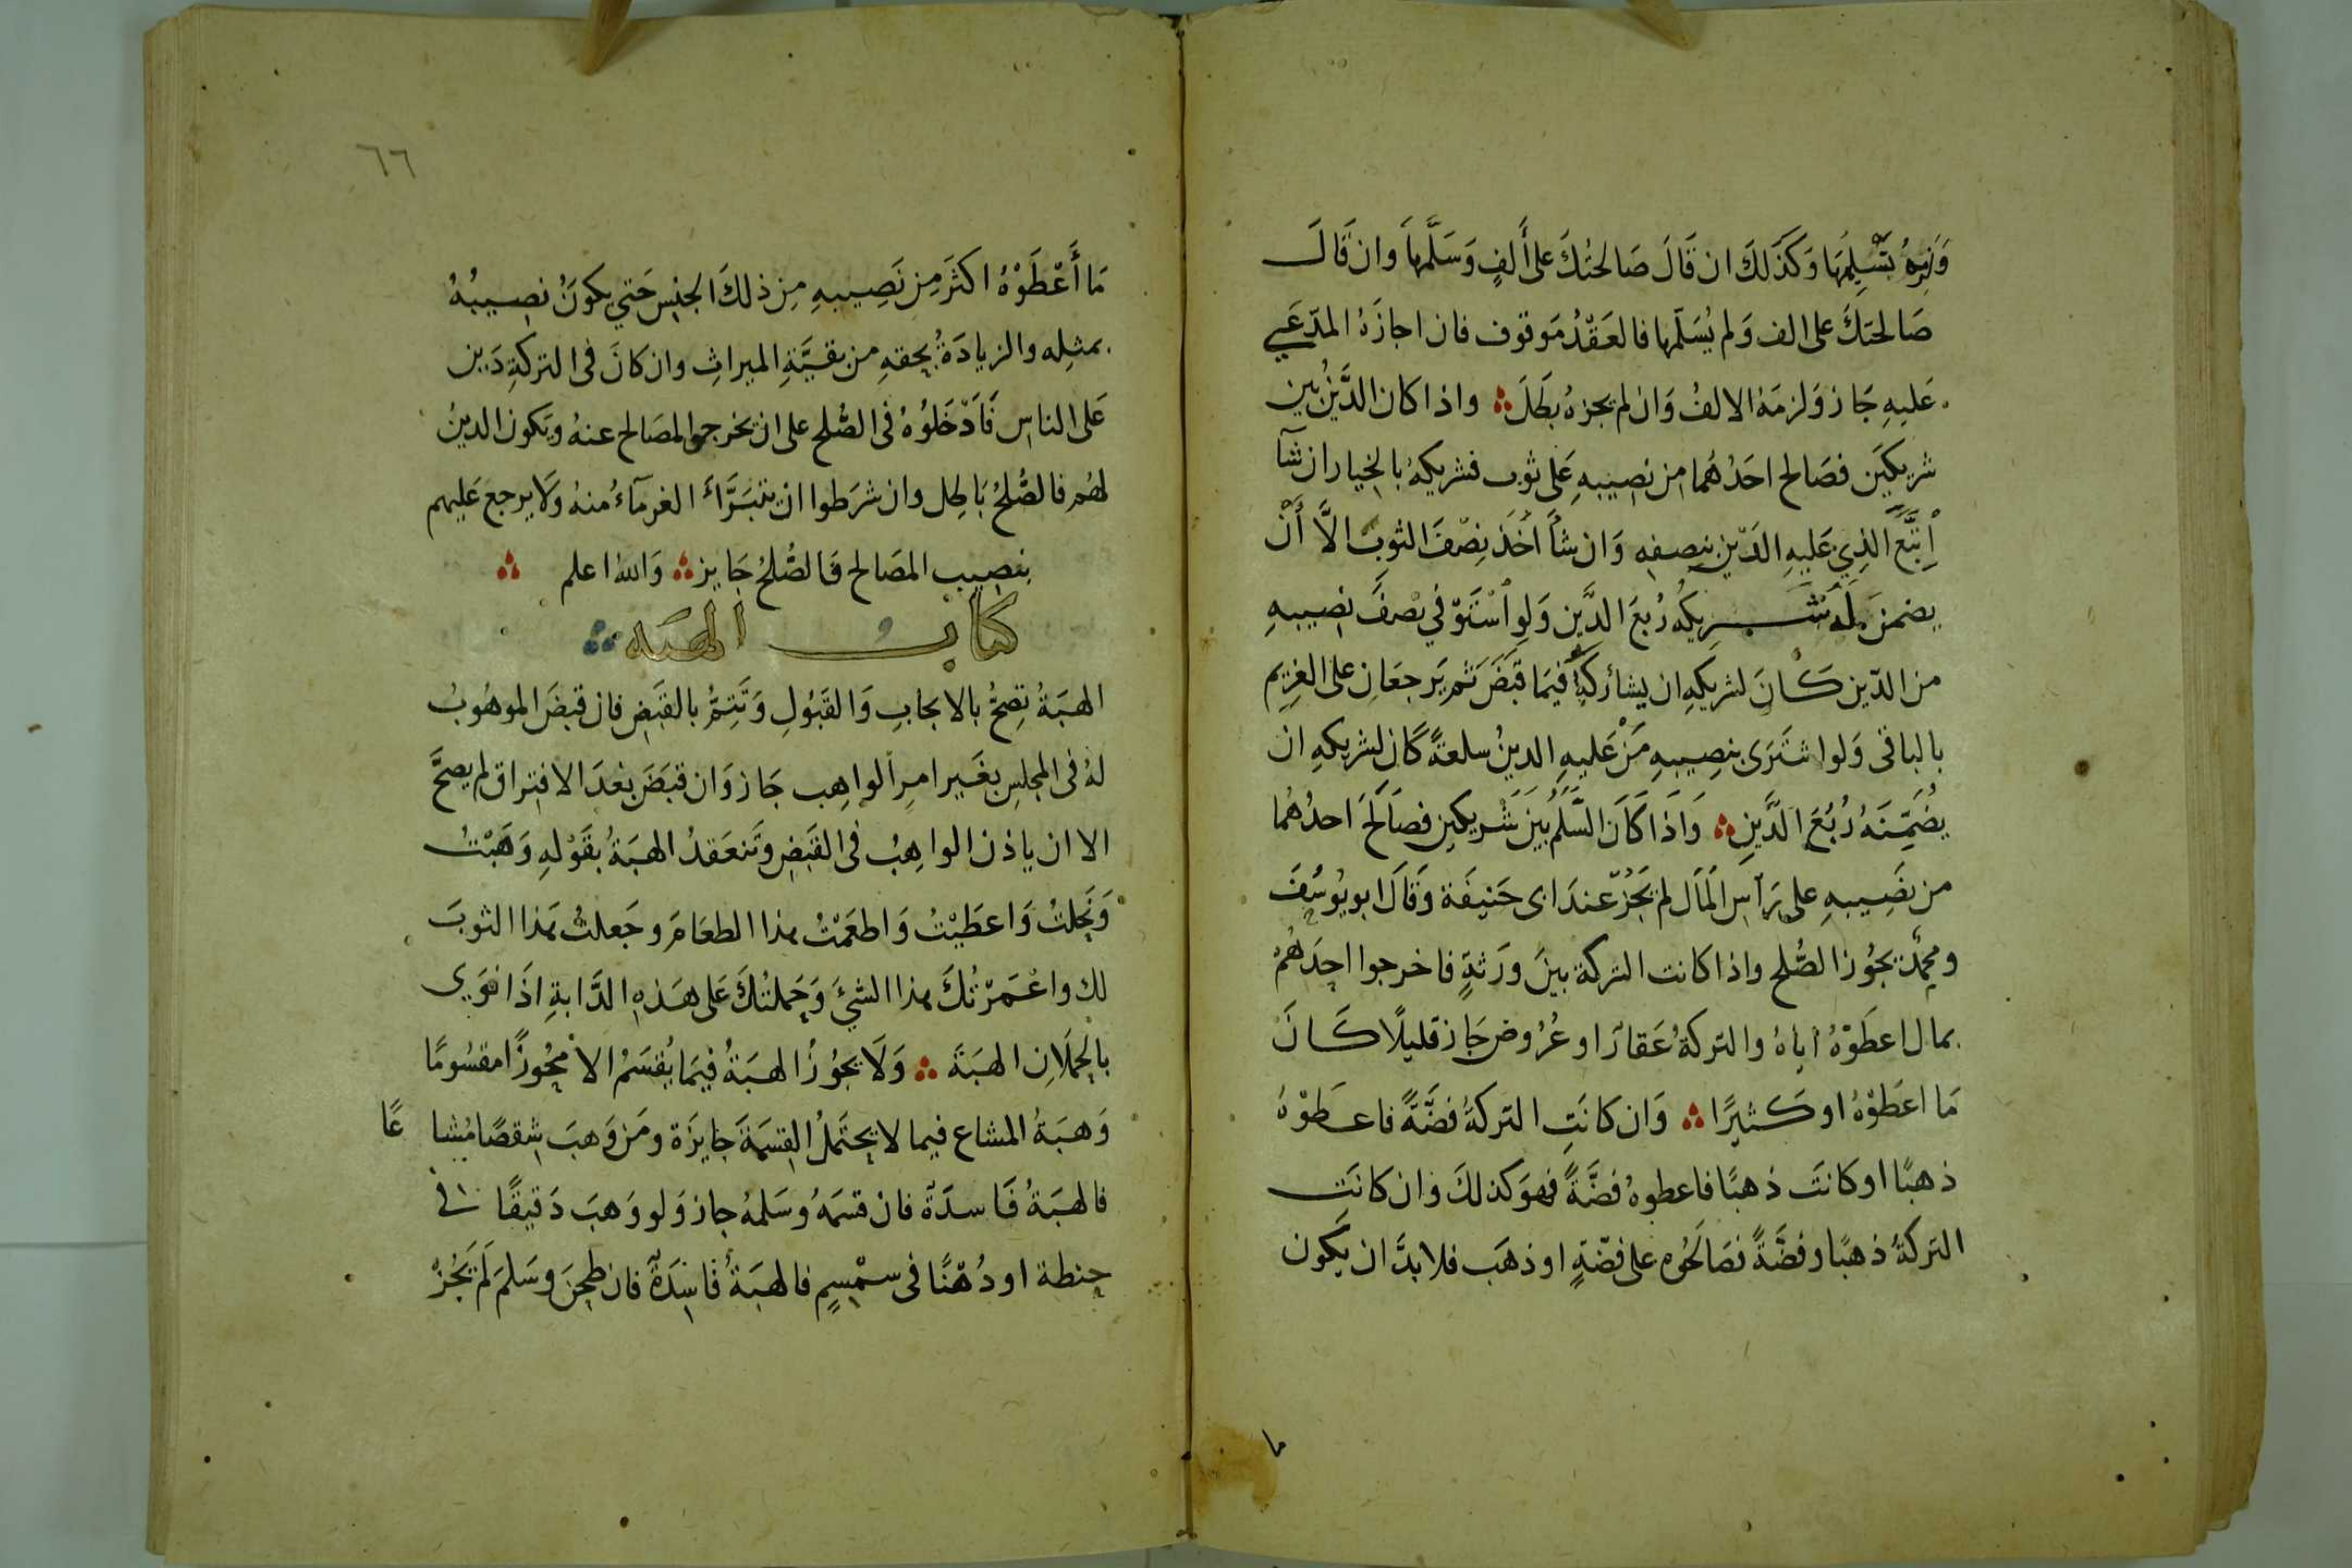 وَلزِمَهُ تَسْلِيمُهَا وَكَذَلكَ ان قَالَ صَالحتُكَ على أَلفٍ وَسَلَّمَهَا وان قَالَ
صَالحتكَ على الف وَلم يُسَلّمها فالعَقْدُ مَوقوف فان اجازَهُ المدّعَي
عَليهِ جَاز وَلزمَهُ الالفُ وَان لم يجزهُ بَطَلَ ؞ واذا كان الدَّينُ بين
شريكَين فصَالح احَدُهُما من نصِيبهِ عَلى ثوب فشريكهُ بالخيار ان شآ
اِتَّبَعَ الذِي عَليهِ الدّين بنِصفهِ وَان شأَ اَخَذ نِصْفَ الثوب الاَّ أَنْ
يضمنَ لَهُ شَريكُه رُبعَ الدَّين وَلوِ اسْتَوْفي نِصْفَ نصيبهِ
من الدّين كَانَ لشريكهِ ان يشاركَهُ فيَما قبَضَ ثم يَرجعَانِ على الغرِيم
بالباقى وَلو اشتَرَى بنصِيبهِ مَنْ عَليهِ الدينُ سلعةً كان لشريكهِ ان
يُضَمِّنَهُ رُبُعَ الدَّينِ ؞ وَاذَا كَانَ السَّلَمُ بَينَ شَريكين فصَالَحَ احدُهُما
من نصَيبهِ على رَأس المَال لم يَجُزْ عندَ ابى حَنيفَة وَقَالَ ابو يُوسُفَ
ومحمّد يجوُز الصُّلح واذا كانت التركة بينَ ورَثةٍ فاخرجوا احَدَهُمْ
بمال اعطَوْهُ اياهُ والتركةُ عَقارًا او عُرُوض جَاز قليلًا كَانَ
مَا اعطَوْهُ او كَثيرًا ؞ وَان كانَتِ التركةُ فضَّةً فاعطوْهُ
ذهبًا او كانَت ذهبًا فاعطوهُ فضَّةً فهوَ كذلكَ وَان كانَتِ
التركةُ ذهبًا وفضَّةً فصَالَحُوه على فضّةٍ او ذهَب فلا بدَّ ان يكون
ما
٦٦
مَا أَعْطَوْهُ اكثَرَ مِن نَصِيبهِ مِن ذلكَ الجنسِ حَتي يكونَ نصِيبُهُ
بمثلِه والزيادَةُ بحقهِ من بقيَّةِ الميراثِ وان كانَ فى التركةِ دَين
عَلى الناسِ فَأَدْخَلُوُهُ فى الصُّلح على ان يخرجوا المصَالح عنهُ وَيكون الدينُ
لهُم فالصُّلحُ بَاطِل وان شرَطوا ان يتبَرَّأَ الغرمآءُ منهُ وَلا يرجع عَليهم
بنصِيب المصَالح فَالصُّلحُ جَايز ؞ وَالله اعلم ؞
كتاب الهبَه ؞
الهبَةُ تِصحُّ بالايجابِ وَالقَبُولِ وَتَتِمُّ بالقَبَضِ فان قبضَ الموهُوبُ
لهُ فى المجلسِ بغَير امرِ الواهِب جَاز وَان قبَضَ بَعْدَ الافتراق لم يصحَّ
الا ان ياذن الواهِبُ فى القبَضِ وَتَنعَقدُ الهبَةُ بقَوْلهِ وَهَبْتُ
وَنحَلتُ وَاعطَيْتُ وَاطعَمْتُ هذا الطعَامَ وجَعلتُ هَذا الثوبَ
لك واعْمَرْتُكَ هذا الشئَ وَحَملتُكَ عَلى هَذهِ الدَّابةِ اذَا نوَى
بالحُملَانِ الهبَةَ ؞ وَلَا يجوُزُ الهبَةُ فيَما يُقسَمُ الا محُوزًا مقسُومًا
وَهبَةُ المشاع فيما لا يحتَملُ القِسمَةَ جَايزَة ومَن وَهبَ شِقصًا مُشاعًا
فالهبَةُ فَاسدَة فان قسمَهُ وسَلمهُ جاز وَلو وَهبَ دَقيقًا فى
حِنطة او دُهنًا فى سمْسمٍ فالهبَةُ فَاسِدَةٌ فان طحنَ وسَلمَ لَم يَجُزْ